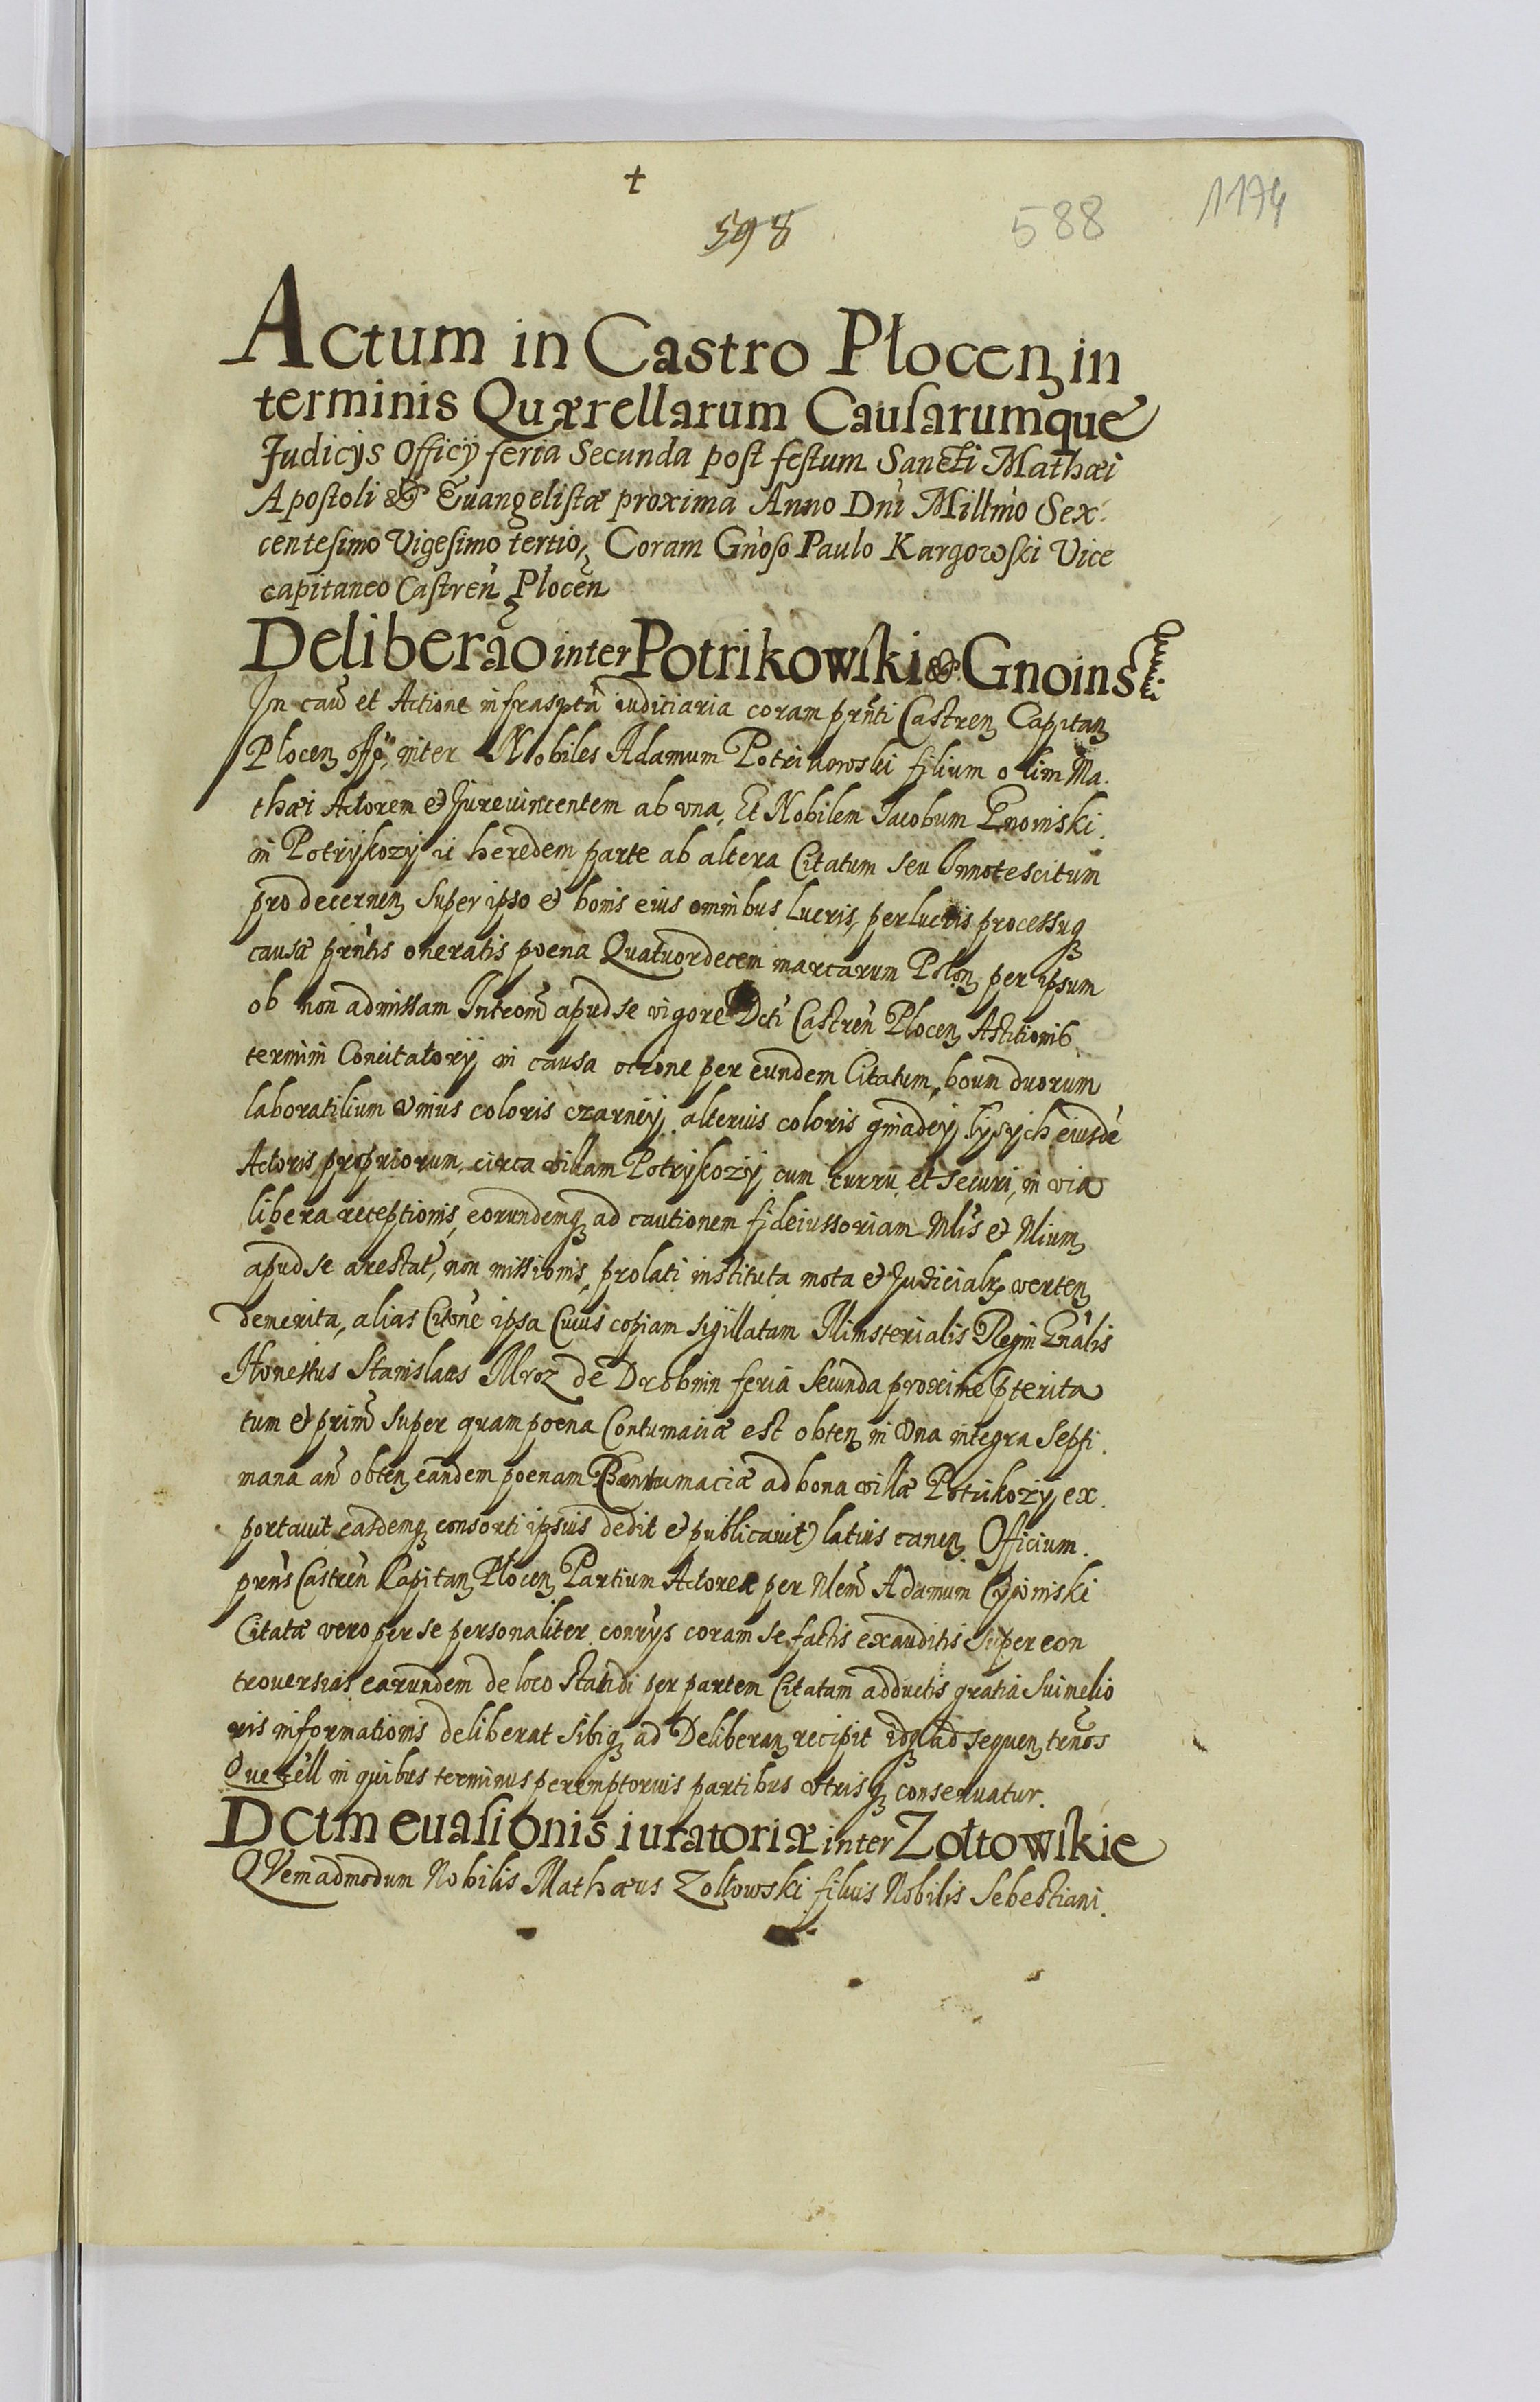 +
598 588 1174
Actum in Castro Płocen in
terminis Quærellarum Causarumque
Judicijs Officij feria Secunda post festum Sancti Mathæi
Apostoli & Euangelistæ proxima Anno Dni Millmo Sex
centesimo Vigesimo tertio, Coram Gnoso Paulo Kargowski Vice
capitaneo Castren Płocen
Deliberao inter Potrikowski & Gnoinski
In cau et Actione infrasptu iuditiaria coram prnti Castren Capitan
Plocen offo, inter Nobiles Adamum Potrikowski filium olim Ma.
thæi Actorem & Jureuincentem ab vna, Et Nobilem Jacobum Gnoinski.
in Potrykozy heredem parte ab altera Citatum seu Innotescitum
pro decernen super ipso & bonis eius omnibus lucris, perlucris processuq
causæ prntis oneratis poena Quatuordecem marcarum Polon per ipsum
ob non admissam Introm apud se vigore Dcti Castren Plocen Actitionis
termini Concitatorij in causa oczione per eundem Citatum, boum duorum
laboratilium vnius coloris czarneÿ, alterius coloris gniadeÿ łysych eiusde
Actoris propriorum, circa villam Potrykozÿ, cum curru, et securi, in via
libera receptionis, eorundemq ad cautionem fideiussoriam Nlis & Nlium
apud se arestat, non missionis, prolati instituta mota & Judicialr verten
demerita, alias Citone ipsa Cuius copiam sigillatam Ministerialis Regni Gnalis
Honestus Stanislaus Mroz de Drobnin feria secunda proxime pterita
tum & prim super quam poena Contumaciæ est obten in vna integra septi.
mana an obten eandem poenam Contumaciæ ad bona villæ Potrikozy ex.
portauit easdemq consorti ipsius dedit & publicauit) latius canen. Officium.
prns Castren Capitan Płocen Partium Actoreæ per Nlem Adamum
Citatæ vero per se personaliter conrijs coram se factis exauditis super con
trouersias earundem de loco standi per partem Citatam adductis gratia sui melio
ris informationis deliberat sibiq ad Deliberan recipit idq ad sequen trnos
Querell in quibus terminus peremptorius partibus vtrisq conseruatur.
Dctm euasionis iuratoriæ inter Zołtowskie
QVemadmodum Nobilis Mathæus Zołtowski filius Nobilis Sebestiani.